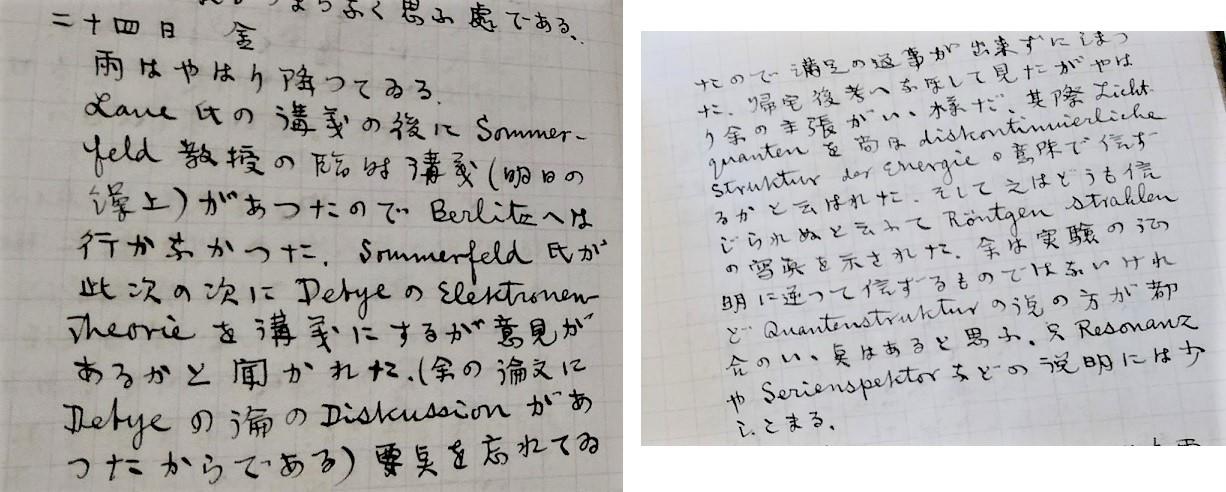 思ふ處である、
二十四日 金
雨はやはり降つてゐる.
Laue 氏の講義の後に Sommer-
feld 教授の臨時講義(明日の
繰上)があつたので Berlitz へは
行かなかつた. Sommerfeld 氏が
此次の次に Debye の Elektronen-
theorie を講義にするが意見が
あるかと聞かれた.(余の論文に
Debye の論の Diskussion があ
つたからである) 要点を忘れてゐ
たので満足の返事が出来ずにしまつ
た. 帰宅後考へなほして見たがやは
り余の主張がいゝ様だ. 其際 Licht-
quanten を尚ほ diskontinuierliche
Struktur der Energie の意味で信ず
るかと云はれた. そして之はどうも信
じられぬと云れて Röntgen Strahlen
の寫眞を示された. 余は実験の証
明に逆つて信ずるものではないけれ
ど Quantenstruktur の説の方が都
合のいゝ点はあると思ふ. 只 Resonanz
や Serienspektor などの説明には少
しこまる.